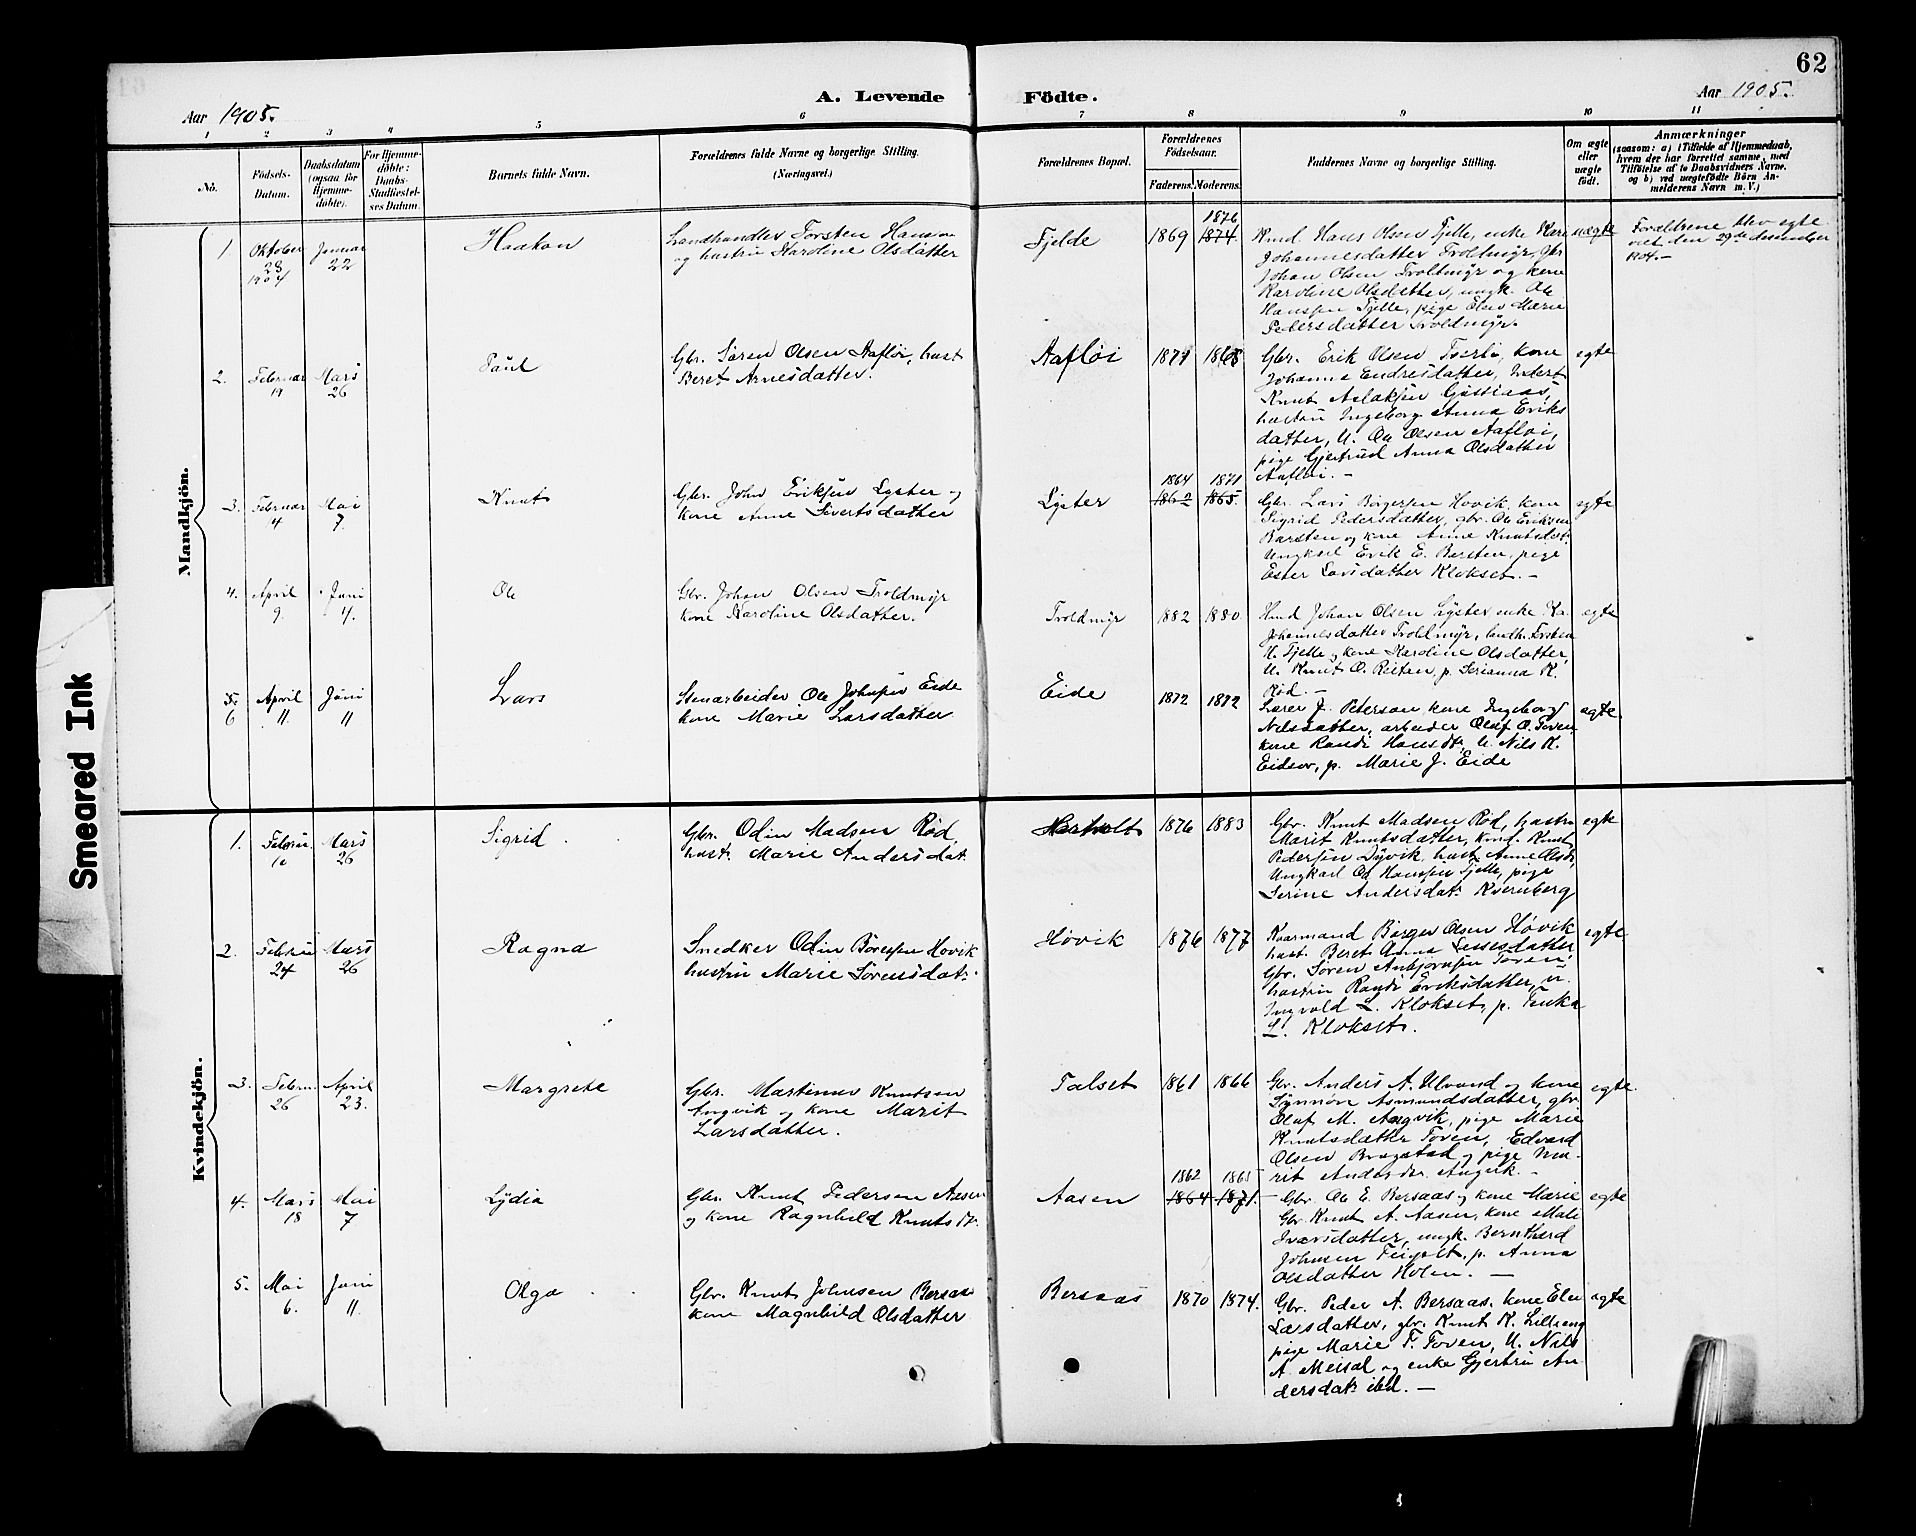 62
Aar 1905.
A. Levende Födte.
Aar 1905.
1 2 3 4 5 6 7 8 9 10 11
No.
Födsels-Datum.
Daabsdatum (ogsaa for Hjemmedöbte).
For Hjemmedöbte: Daabs-Stadfæstelses Datum.
Barnets fulde Navn.
Forældrenes fulde Navne og borgerlige Stilling.
(Næringsvei.)
Forældrenes Bopæl.
Forældrenes Födselsaar.
Faderens. Moderens.
Faddernes Navne og borgerlige Stilling.
Om ægte eller uægte födt.
Anmærkninger
(saasom: a) i Tilfælde af Hjemmedaab, hvem der har forrettet samme, med Tilföielse af to Daabsvidners Navne, og b) ved uægtefödte Börn Anmelderens Navn m. V.)
Mandkjön.
1 Oktober 28 1904 Januar 22 Haakon
Landhandler Torsten Hansen
og hustru Karoline Olsdatter
Fjelde 1869 1876 1874
Kmd. Hans Olsen Fjelle, enke Kari
Johannesdatter Troldmyr, Gbr
Johan Olsen Troldmyr og kone
Karoline Olsdatter, ungk. Ole
Hanssen Fjelle, pige Elen Marie
Pedersdatter Troldmyr.
uægte
Forældrene blev egte
viet den 29de desember
1904.—
2. Februar 19 Mars 26 Paul
Gbr. Søren Olsen Aafløi, hust
Beret Arnesdatter.
Aafløi 1871 1868
Gbr. Erik Olsen kone
Johanna Endresdatter, Inderst
Knut Aslaksen
hustru Ingeborg Anna Eriks
datter, U. Ole Olsen Aafløi,
pige Gjertrud Anna Olsdatter
Aafløi.—
egte
3. Februar 4 Mai 7. Knut
Gbr. John Eriksen Lyster og
kone Anne Sivertsdatter
Lyster 1864 1862 1871 1865.
Gbr. Lars Børgersen Hovik, kone
Sigrid Pedersdatter, gbr. Ole Eriksen
Barsten og kone Anne Knutsdat.
Ungkarl Erik E. Barsten, pige
Ester Larsdatter Klokset.—
egte
4. April 9. Juni 4. Ole
Gbr. Johan Olsen Troldmyr
kone Karoline Olsdatter.
Troldmyr 1882 1880
Kmd Johan Olsen Lyster enke Ka.
Johannesdatter Troldmyr, landh. Torsten
H. Fjelle og kone Karoline Olsdatter,
U. Knut O. Reiten, p. Serianna K.
Rød.—
egte
5. 6 April 11. Juni 11 Lars
Stenarbeider Ole Johnsen Eide
kone Marie Larsdatter
Eide 1872 1872
Lærer J. Peterson, kone Ingeborg
Nilsdatter, arbeider Olaf O. Toven,
kone Randi Hansdtr, U. Nils K.
Eidsør, p. Marie J. Eide
egte.
Kvindekjön.
1. Februar 10 Mars 26 Sigrid
Gbr. Odin Madsen Rød,
hust. Marie Andersdat.
1876 1883
Gbr. Knut Madsen Rød, hustru
Marit Knutsdatter, kmd. Knut
Pedersen Dyvik, hust Anne Olsdt,
Ungkarl Od Hanssen Fjelle, pige
Serine Andersdat. Kvernberg
egte
2. Februar 24 Mars 26 Ragna
Snedker Odin Børessen Hovik
hustru Marie Sørensdat.
Høvik 1876 1877
Kaarmand Børger Olsen Høvik
hust. Beret Anna Lassesdatter,
Gbr. Søren Asbjørnsen Toven,
hustru Randi Eriksdatter, u.
Ingvald L. Klokset, p. Enka
L. Klokset.
egte
3. Februar 26 April 23. Margrete
Gbr. Martinus Knutsen
Angvik og kone Marit
Larsdatter.
Talset 1861 1866
Gbr. Anders A. Ulvund og kone
Synnøve Asmundsdatter, gbr.
Olaf M. Angvik, pige Marie
Knutsdatter Toven, Edvard
Olsen Bragstad og pige Ma-
rit Andersdtr Angvik.—
egte.
4. Mars 18 Mai 7 Lydia
Gbr. Knut Pedersen Aasen
og kone Ragnhild Knutsdtr.
Aasen 1862 1864 1865 1871.
Gbr. Ole E. Bersaas og kone Marie
Gbr. Knut A. Aasen, kone Mali
Iversdatter, ungk. Bernthard
Johnsen p. Anna
Olsdatter Holen.—
egte
5. Mai 6. Juni 11. Olga
Gbr. Knut Johnsen Bersaas
kone Magnhild Olsdatter
Bersaas 1870 1874.
Gbr. Peder A. Bersaas, kone Elen
Larsdatter, gbr. Knut K. Lilleeng
pige Marie F. Toven, U. Nils
A. Meisal og enke Gjertru An-
dersdat. ibd.—
egte
Smeared Ink